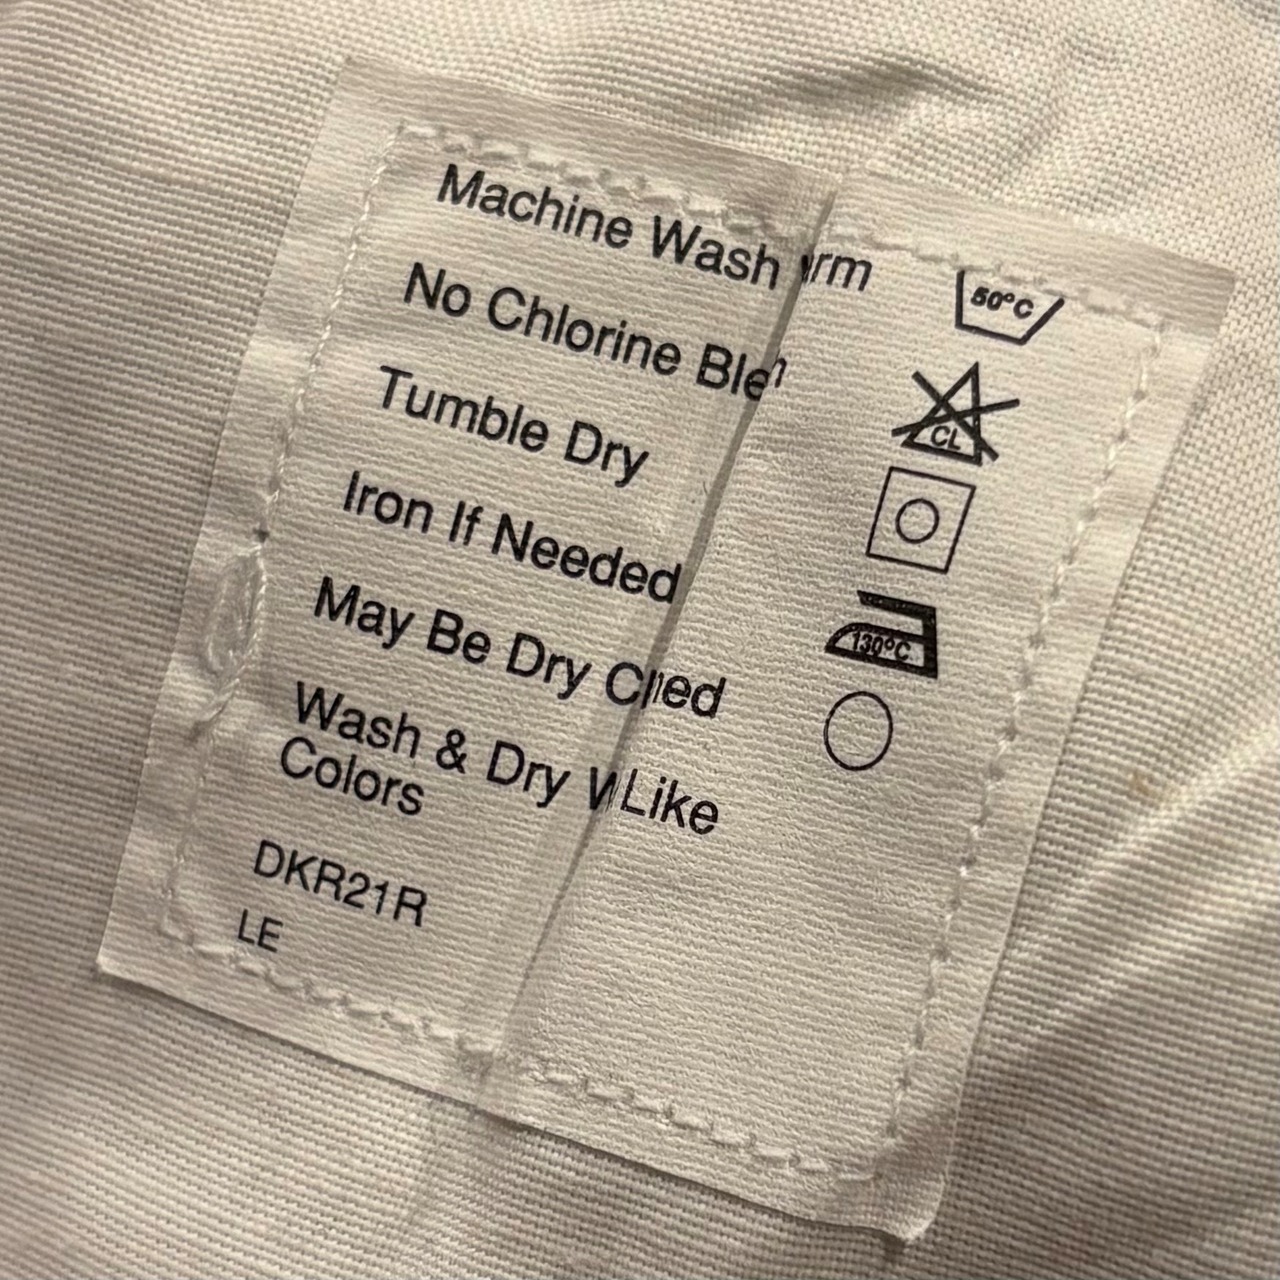 Machine Wash rm
50°C
No Chlorine Ble
CL
Tumble Dry
Iron If Needed
130°C
May Be Dry C ed
Wash & Dry W Like
Colors
DKR21R
LE